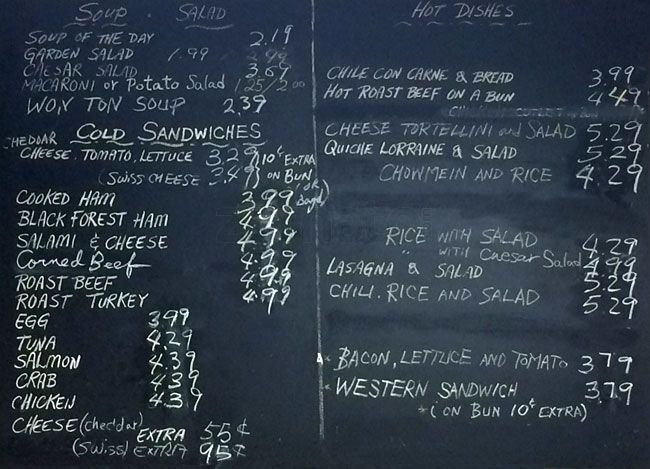 SOUP . SALAD
SOUP OF THE DAY 2.19
GARDEN SALAD 1.99 2.99
CAESAR SALAD 3.69
MACARONI or Potato Salad 1.25/2.00
WON TON SOUP 2.39
COLD SANDWICHES
CHEDDAR CHEESE, TOMATO, LETTUCE 3.29 } 10¢ EXTRA
(SWISS CHEESE 3.49 } ON BUN
or Bagel)
COOKED HAM 3.99
BLACK FOREST HAM 4.99
SALAMI & CHEESE 4.99
Corned Beef 4.99
ROAST BEEF 4.99
ROAST TURKEY 4.99
EGG 3.99
TUNA 4.29
SALMON 4.39
CRAB 4.39
CHICKEN 4.39
CHEESE (cheddar) EXTRA 55¢
(Swiss) EXTRA 95¢
HOT DISHES
CHILE CON CARNE & BREAD 3.99
HOT ROAST BEEF ON A BUN 4.49
CHEESE TORTELLINI and SALAD 5.29
QUICHE LORRAINE & SALAD 5.29
CHOWMEIN AND RICE 4.29
RICE WITH SALAD 4.29
" WITH Caesar Salad 4.99
LASAGNA & SALAD 5.29
CHILI, RICE AND SALAD 5.29
* BACON, LETTUCE AND TOMATO 3.79
* WESTERN SANDWICH 3.79
* (ON BUN 10¢ EXTRA)